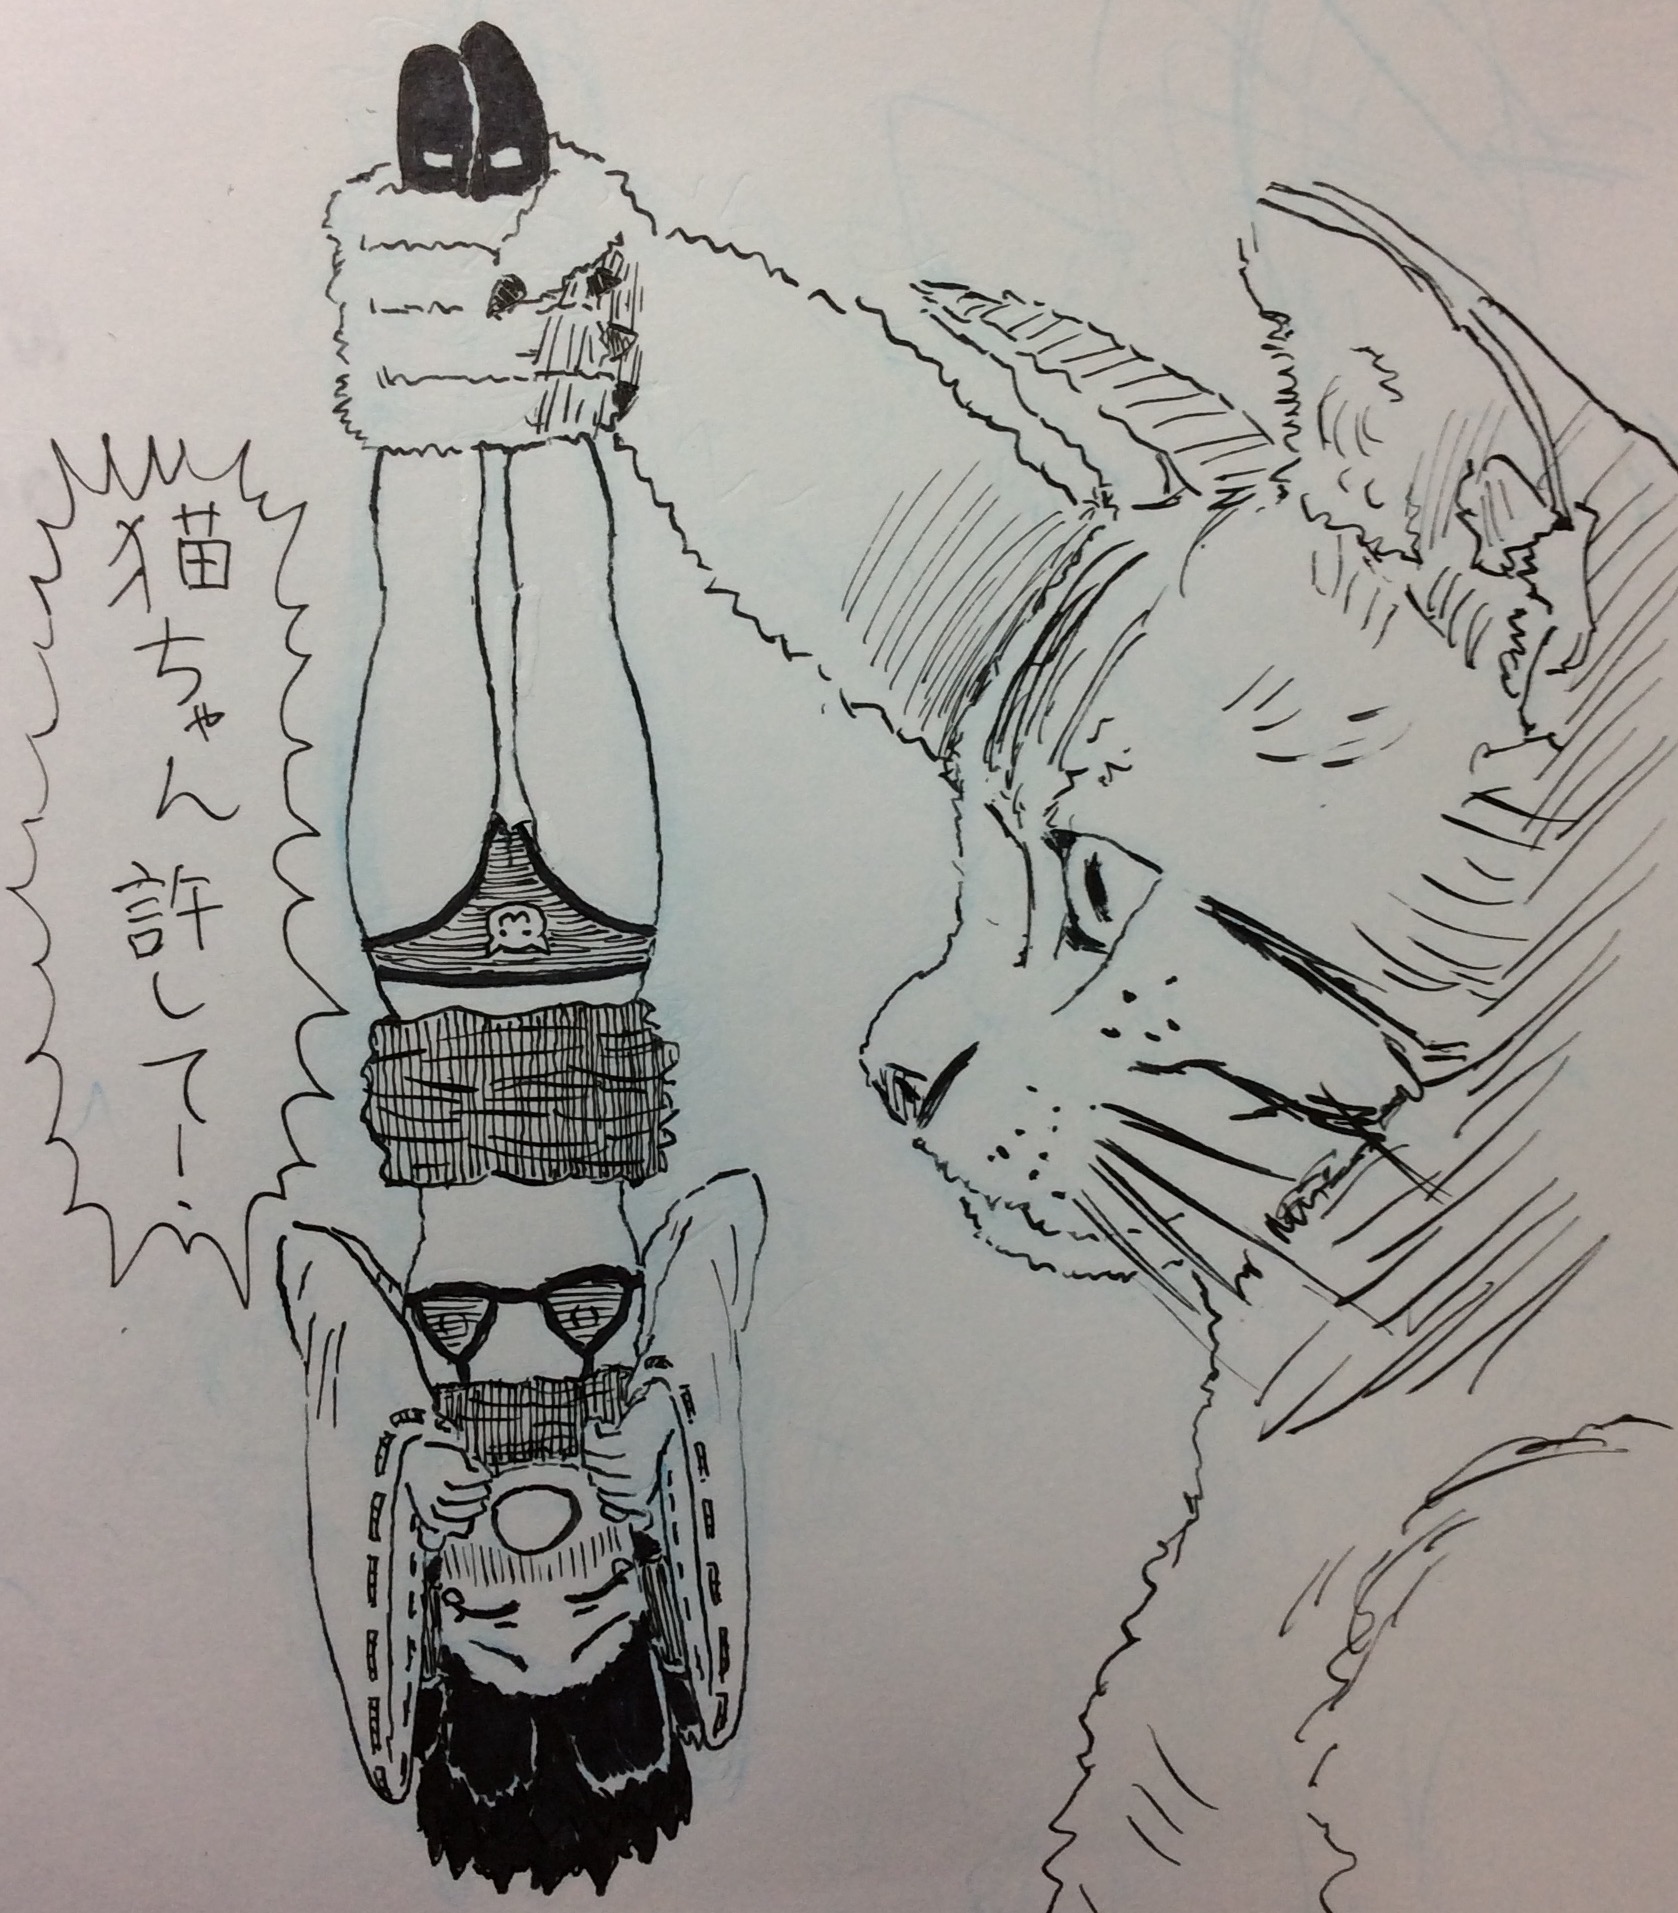 猫ちゃん許してー!